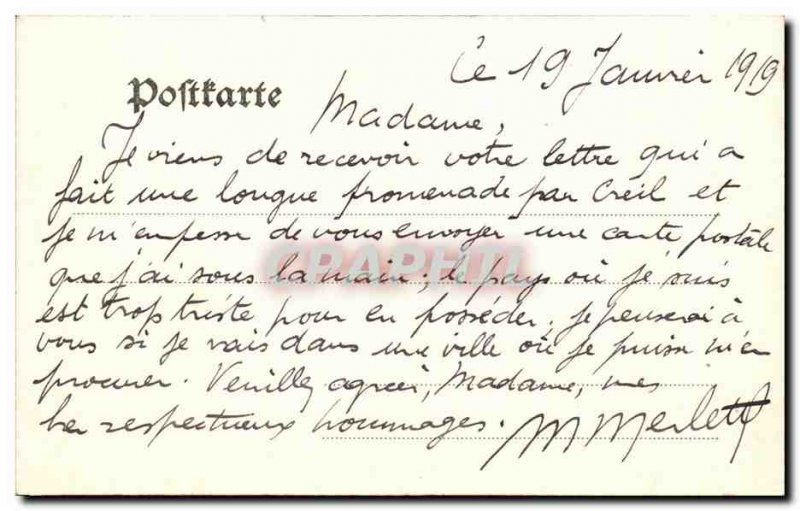 Le 19 Janvier 1919
Postkarte
Madame,
Je viens de recevoir votre lettre qui a
fait une longue promenade par Creil et
je m'empesse de vous envoyer une carte postale
que j'ai sous la main; le pays où je suis
est trop triste pour en posséder, je penserai à
vous si je vais dans une ville où je puisse m'en
procurer. Veuillez agréer, Madame, mes
bes respectueux hommages. M Merlett
CPAPHIL